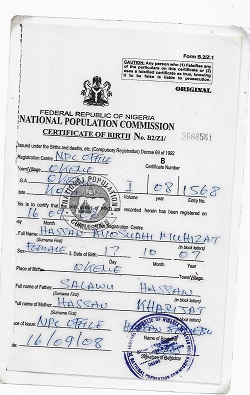 Form B.2/Z.1
CAUTION: Any person who (1) Falsifies any of the particulars on this certificate or (2) Uses a falsified certificate as true, knowing it to be false is liable to prosecution.
ORIGINAL
FEDERAL REPUBLIC OF NIGERIA
NATIONAL POPULATION COMMISSION
CERTIFICATE OF BIRTH No. B2/Z1/
Issued under the Births and deaths, etc. (Compulsory Registration) Decree 69 of 1992
Registration Centre NPC OFFICE B
Town/Village OKENE Certificate Number
L.G.A. OKENE I 08 1568
State Volume year Entry No.
This is to certify that the birth of which are recorded herein has been registered on
16 09
1. Full Name: HASSAN
(Surname First) (In block letter)
FEMALE 3. Date of Birth: 17 10 07
Day Month Year
Place of Birth: OKENE
Town/Village
Full name of Father SALAWU HASSAN
(Surname First) (In block letter)
Full name of Mother HASSAN
(Surname First) (In block letter)
Place of Issue: NPC OFFICE
16/09/08
Signature of Registrar